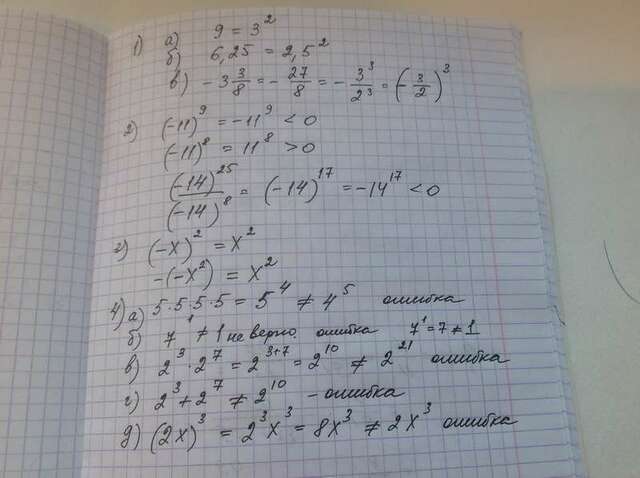 1) а) 9 = 3²
б) 6,25 = 2,5²
в) -3 3/8 = - 27/8 = - 3³/2³ = (- 3/2)³
2) (-11)⁹ = -11⁹ < 0
(-11)⁸ = 11⁸ > 0
(-14)²⁵/(-14)⁸ = (-14)¹⁷ = -14¹⁷ < 0
г) (-x)² = x²
-(-x²) = x²
4) а) 5·5·5·5 = 5⁴ ≠ 4⁵ ошибка
б) 7¹ ≠ 1 не верно. ошибка 7¹ = 7 ≠ 1
в) 2³ · 2⁷ = 2³⁺⁷ = 2¹⁰ ≠ 2²¹ ошибка
г) 2³ + 2⁷ ≠ 2¹⁰ - ошибка
д) (2x)³ = 2³x³ = 8x³ ≠ 2x³ ошибка